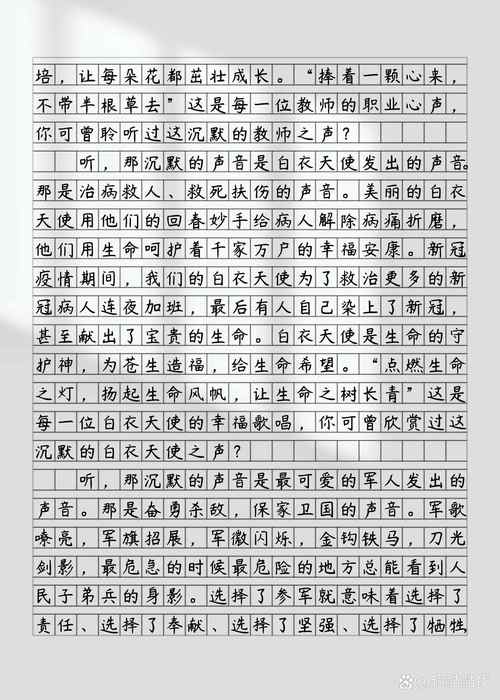 培，让每朵花都茁壮成长。“捧着一颗心来，
不带半根草去”这是每一位教师的职业心声，
你可曾聆听过这沉默的教师之声？
听，那沉默的声音是白衣天使发出的声音。
那是治病救人、救死扶伤的声音。美丽的白衣
天使用他们的回春妙手给病人解除病痛折磨，
他们用生命呵护着千家万户的幸福安康。新冠
疫情期间，我们的白衣天使为了救治更多的新
冠病人连夜加班，最后有人自己染上了新冠，
甚至献出了宝贵的生命。白衣天使是生命的守
护神，为苍生造福，给生命希望。“点燃生命
之灯，扬起生命风帆，让生命之树长青”这是
每一位白衣天使的幸福歌唱，你可曾欣赏过这
沉默的白衣天使之声？
听，那沉默的声音是最可爱的军人发出的
声音。那是奋勇杀敌，保家卫国的声音。军歌
嘹亮，军旗招展，军徽闪烁，金钩铁马，刀光
剑影，最危急的时候最危险的地方总能看到人
民子弟兵的身影。选择了参军就意味着选择了
责任、选择了奉献、选择了坚强、选择了牺牲，